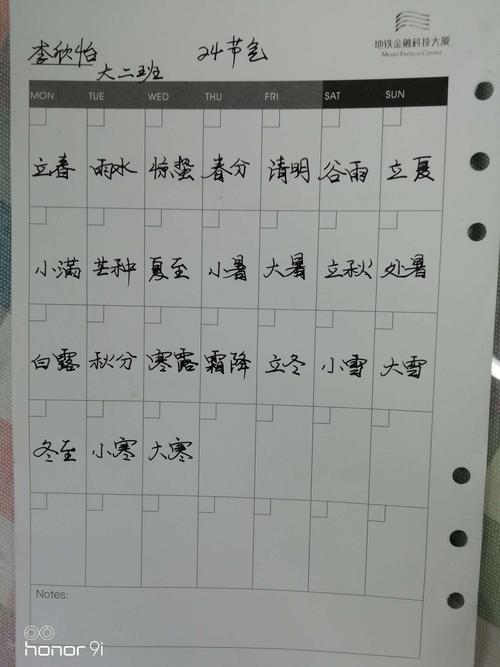 地铁金融科技大厦
METRO FINTECH CENTRE
李欣怡 24节气
大二班
MON TUE WED THU FRI SAT SUN
立春 雨水 惊蛰 春分 清明 谷雨 立夏
小满 芒种 夏至 小暑 大暑 立秋 处暑
白露 秋分 寒露 霜降 立冬 小雪 大雪
冬至 小寒 大寒
Notes:
honor 9i